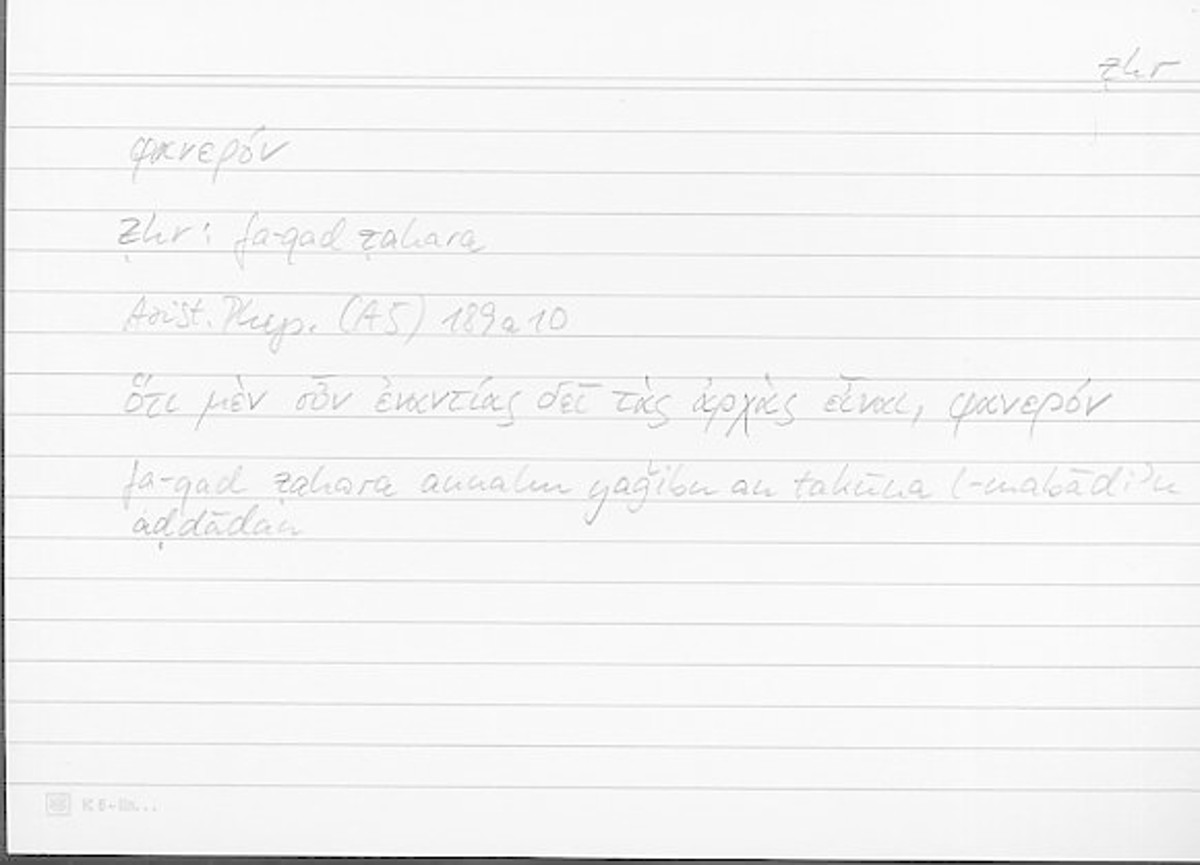 ẓhr
φανερόν
ẓhr: fa-qad ẓahara
Arist. Phys. (A5) 189a10
ὅτι μὲν οὖν ἐναντίας δεῖ τὰς ἀρχὰς εἶναι, φανερόν
fa-qad ẓahara annahu yaǧibu an takūna l-mabādiʾu
aḍdādan